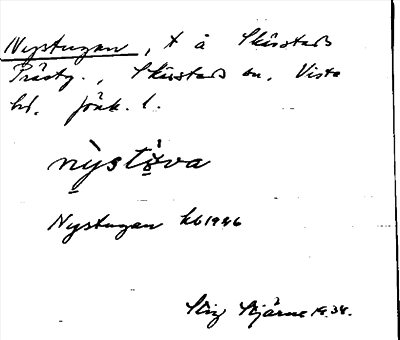 Nystugan, t å Skärstads
Prästg., Skärstads sn. Vista
hd. Jönk. l.
nỳstùva
Nystugan kb 1946
Stig Bjärne 1938.